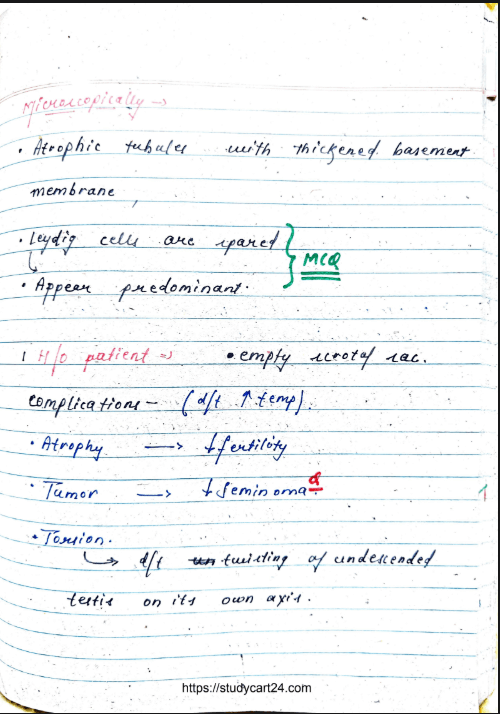 Microscopically →
• Atrophic tubules with thickened basement
membrane,
• Leydig cells are spared } MCQ
↳
• Appear predominant.
| H/o patient ⇒ • empty scrotal sac.
complications - (d/t ↑ temp).
• Atrophy → ↓ fertility
• Tumor → ↓ Seminoma
• Torsion.
↳ d/t twisting of undescended
testis on its own axis.
https://studycart24.com